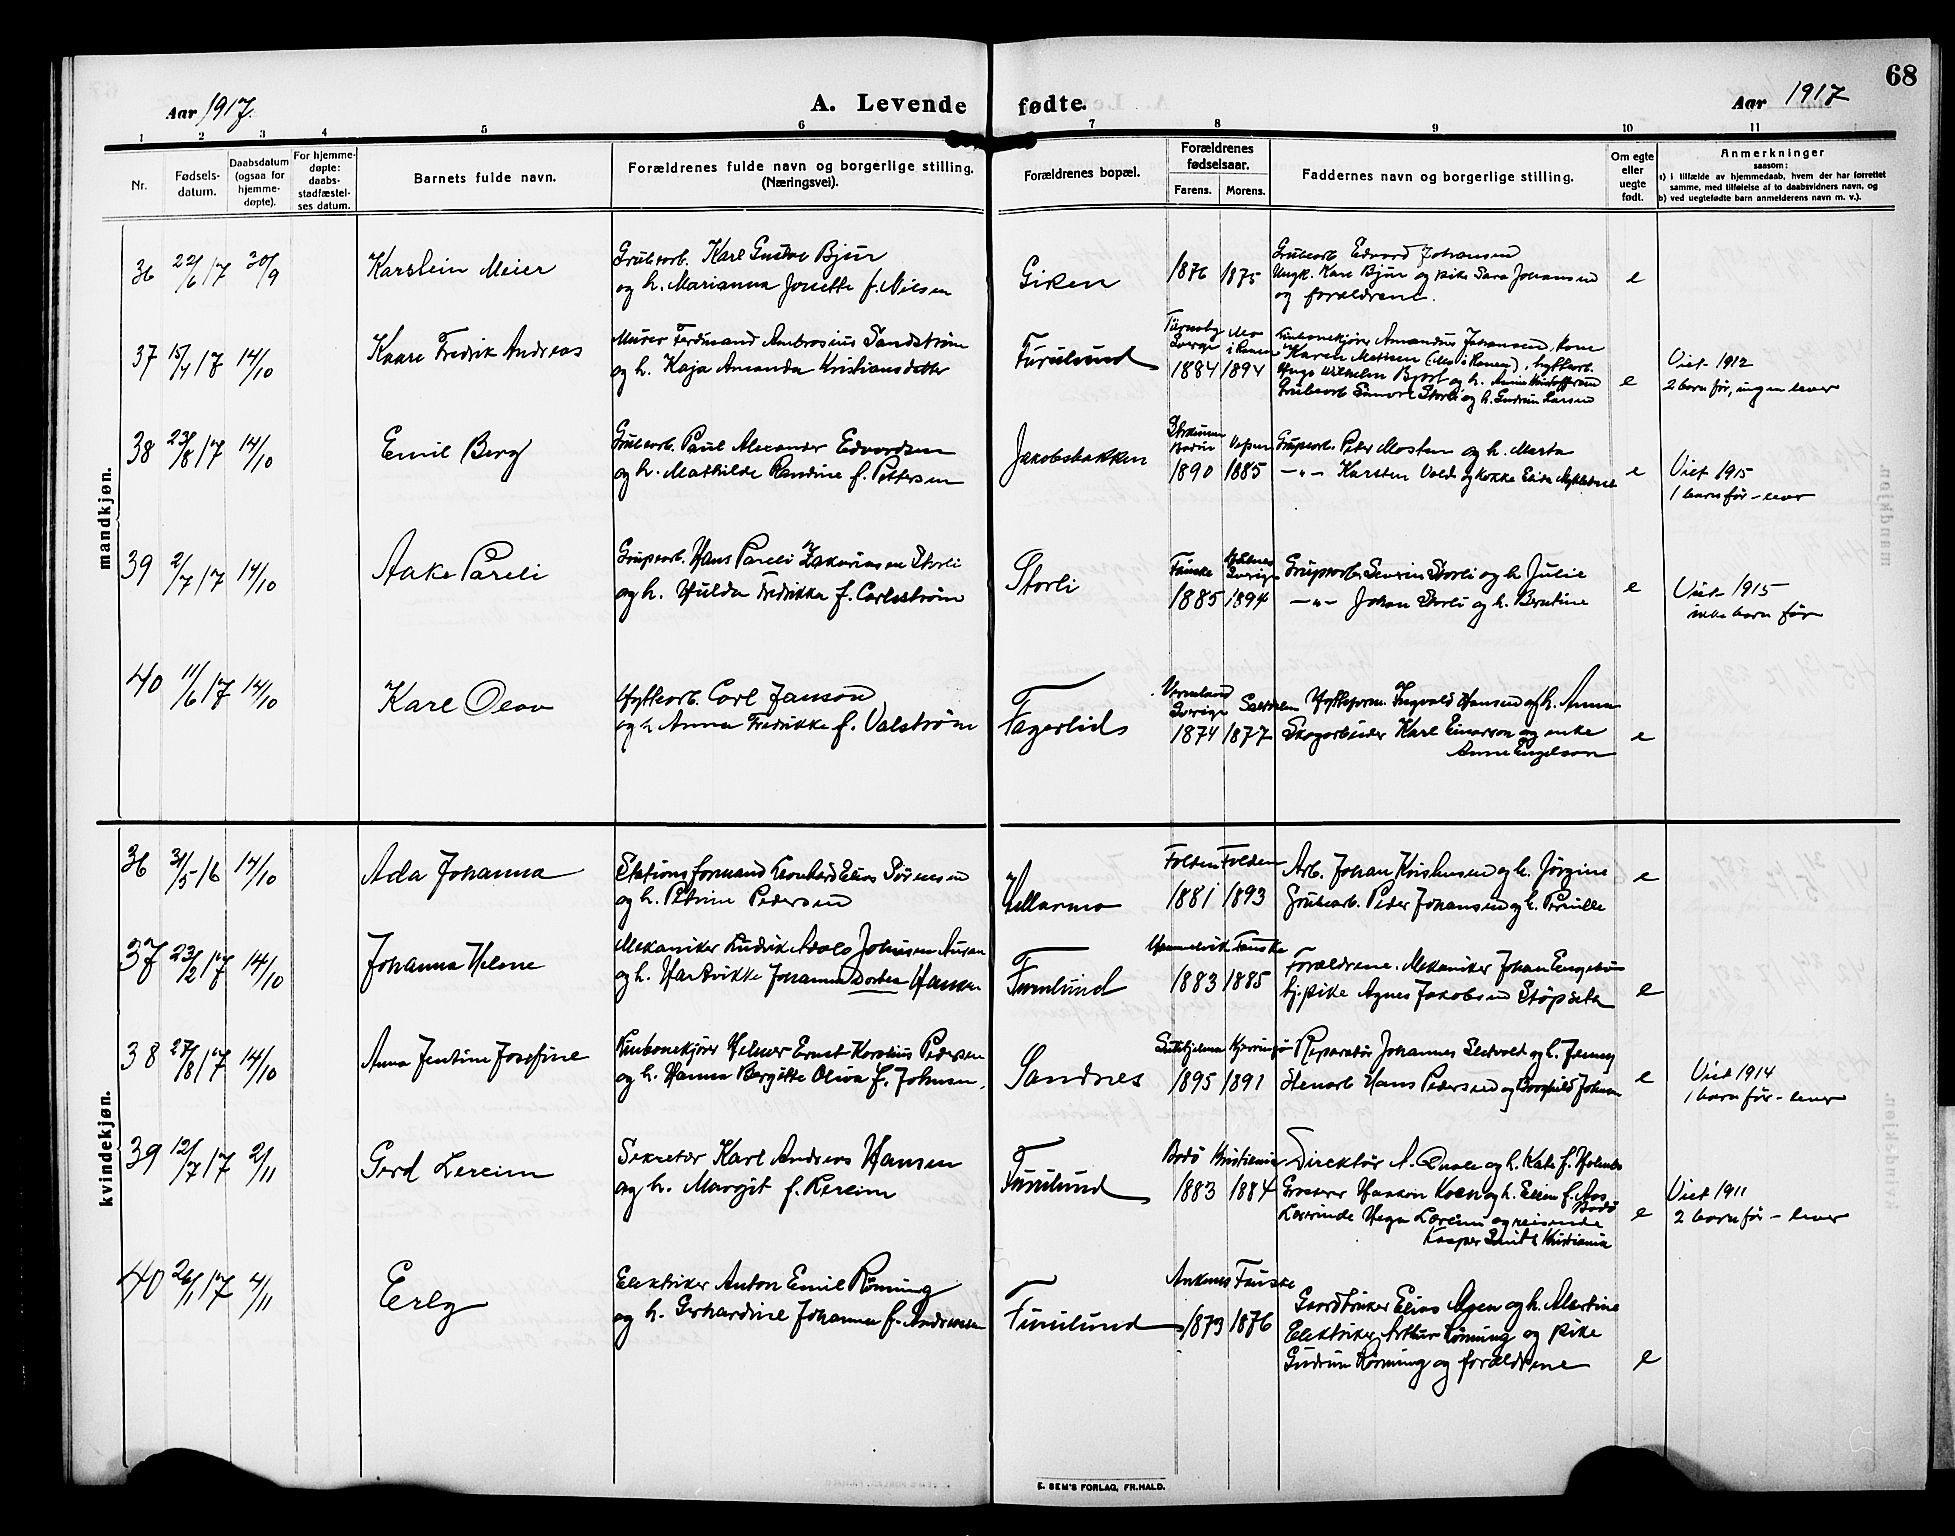 68
Aar 1917.
A. Levende fødte.
Aar 1917
1 2 3 4 5 6 7 8 9 10 11
Nr.
Fødsels-
datum.
Daabsdatum
(ogsaa for
hjemme-
døpte).
For hjemme-
døpte:
daabs-
stadfæstel-
ses datum.
Barnets fulde navn.
Forældrenes fulde navn og borgerlige stilling.
(Næringsvei).
Forældrenes bopæl.
Forældrenes
fødselsaar.
Farens. Morens.
Faddernes navn og borgerlige stilling.
Om egte
eller
uegte
født.
Anmerkninger
saasom:
a) i tilfælde av hjemmedaab, hvem der har forrettet
samme, med tilføielse af to daabsvidners navn, og
b) ved uegtefødte barn anmelderens navn m. v.).
mandkjøn.
36 22/6 17 30/9 Karstein Meier
Grubearb. Karl Gustav Bjür
og h. Marianna Jonette f. Nilsen
Giken 1876 1875
Grubearb Edvard Johansen
Ungk. Kare Bjür og pike Sara Johansen
og forældrene.
e
37 15/7 17 14/10 Kaare Fredrik Andreas
Murer Ferdinand Ambrosius Sandstrøm
og h. Kaja Amanda Kristiansdatter
Furulund
Sverige
1884
Mo
i Ranen
1894
Amandus Johansen, kone
Karen (Mo i Ranen), hyttearb.
Wilhelm og h.
Grubearb Storli og h. Gudrun Larsen
e
Viet 1912
2 barn før, ingen lever
38 23/8 17 14/10 Emil Berg
Grubearb. Paul Alexander Edvardsen
og h. Mathilde Randine f. Pettersen
Jakobsbakken
Bodin
1890
Vefsen
1885
Grubearb. Peter Mosten og h. Marta
—"— Karsten Vold og kokke
e
Viet 1915
1 barn før - lever
39 2/7 17 14/10 Aake Pareli
Grubearb. Hans Pareli Zakariasen Storli
og h. Hulda Fredrikke f. Carlsstrøm
Storli
Fauske
1885
Sverige
1894
Grubearb Severin Storli og h. Julie
—"— Johan Storli og h. Berntine
e
Viet 1915
ikke barn før
40 11/6 17 14/10 Karl Olav
Hyttearb. Carl Janson
og h. Anna Fredrikke f. Valstrøm
Fagerlid
Vermland
Sverige
1874
Saltdalen
1877
Hytteform. Ingvald Hansen og h. Anna
Skogarbeider Karl Einarson og enke
Anne Engelson
e
kvindekjøn.
36 31/5 16 14/10 Ada Johanna
Stationsformand Leonhard Elias Sörensen
og h. Petrine Pedersen
Hellarmo
Folden
1881
Folden
1893
Arb. Johan Kristensen og h. Jörgine
Grubearb. Peder Johansen og h. Pernille
e
37 23/2 17 14/10 Johanna Helene
Mekaniker Ludvik Adolf Johnsen
og h. Hartvikke Johanna Dortea Hansen
Furulund
Hammelvik
1883
Fauske
1885
Forældrene. Mekaniker Johan
tj.pike Agnes Jakobsen
e
38 27/8 17 14/10 Anna Jentine Josefine
Helmer Ernst Kornelius Pedersen
og h. Hanna Bergitte Oliva f. Johnsen.
Sandnes
1895
Kjerringø
1891
Reparatør Johannes Sletvold og h. Jenny
Stenarb Hans Pedersen og Borghild Johnsen
e
Viet 1914
1 barn før - lever
39 12/7 17 2/11 Gerd Lereim
Sekretær Karl Andreas Hansen
og h. Margit f. Lereim
Furulund
Bodø
1883
Kristiania
1884
Direktør N. Quale og h. Kate f. Holmbo
Grosserer Haakon Koen og h. Ellen f. Aas
Bodø
Lærerinde Helga Lereim og reisende
Kasper Smith Kristiania
e
Viet 1911
2 barn før - lever
40 26/1 17 4/11 Erly
Elektriker Anton Emil Rönning
og h. Gerhardine Johanna f. Andreassen
Furulund
Ankenes
1873
Fauske
1876
Gaardbruker Elias Moen og h. Martine
Elektriker Arthur Rönning og pike
Gudrun Rönning og forældrene
e
E. SEM'S FORLAG, FR.HALD.